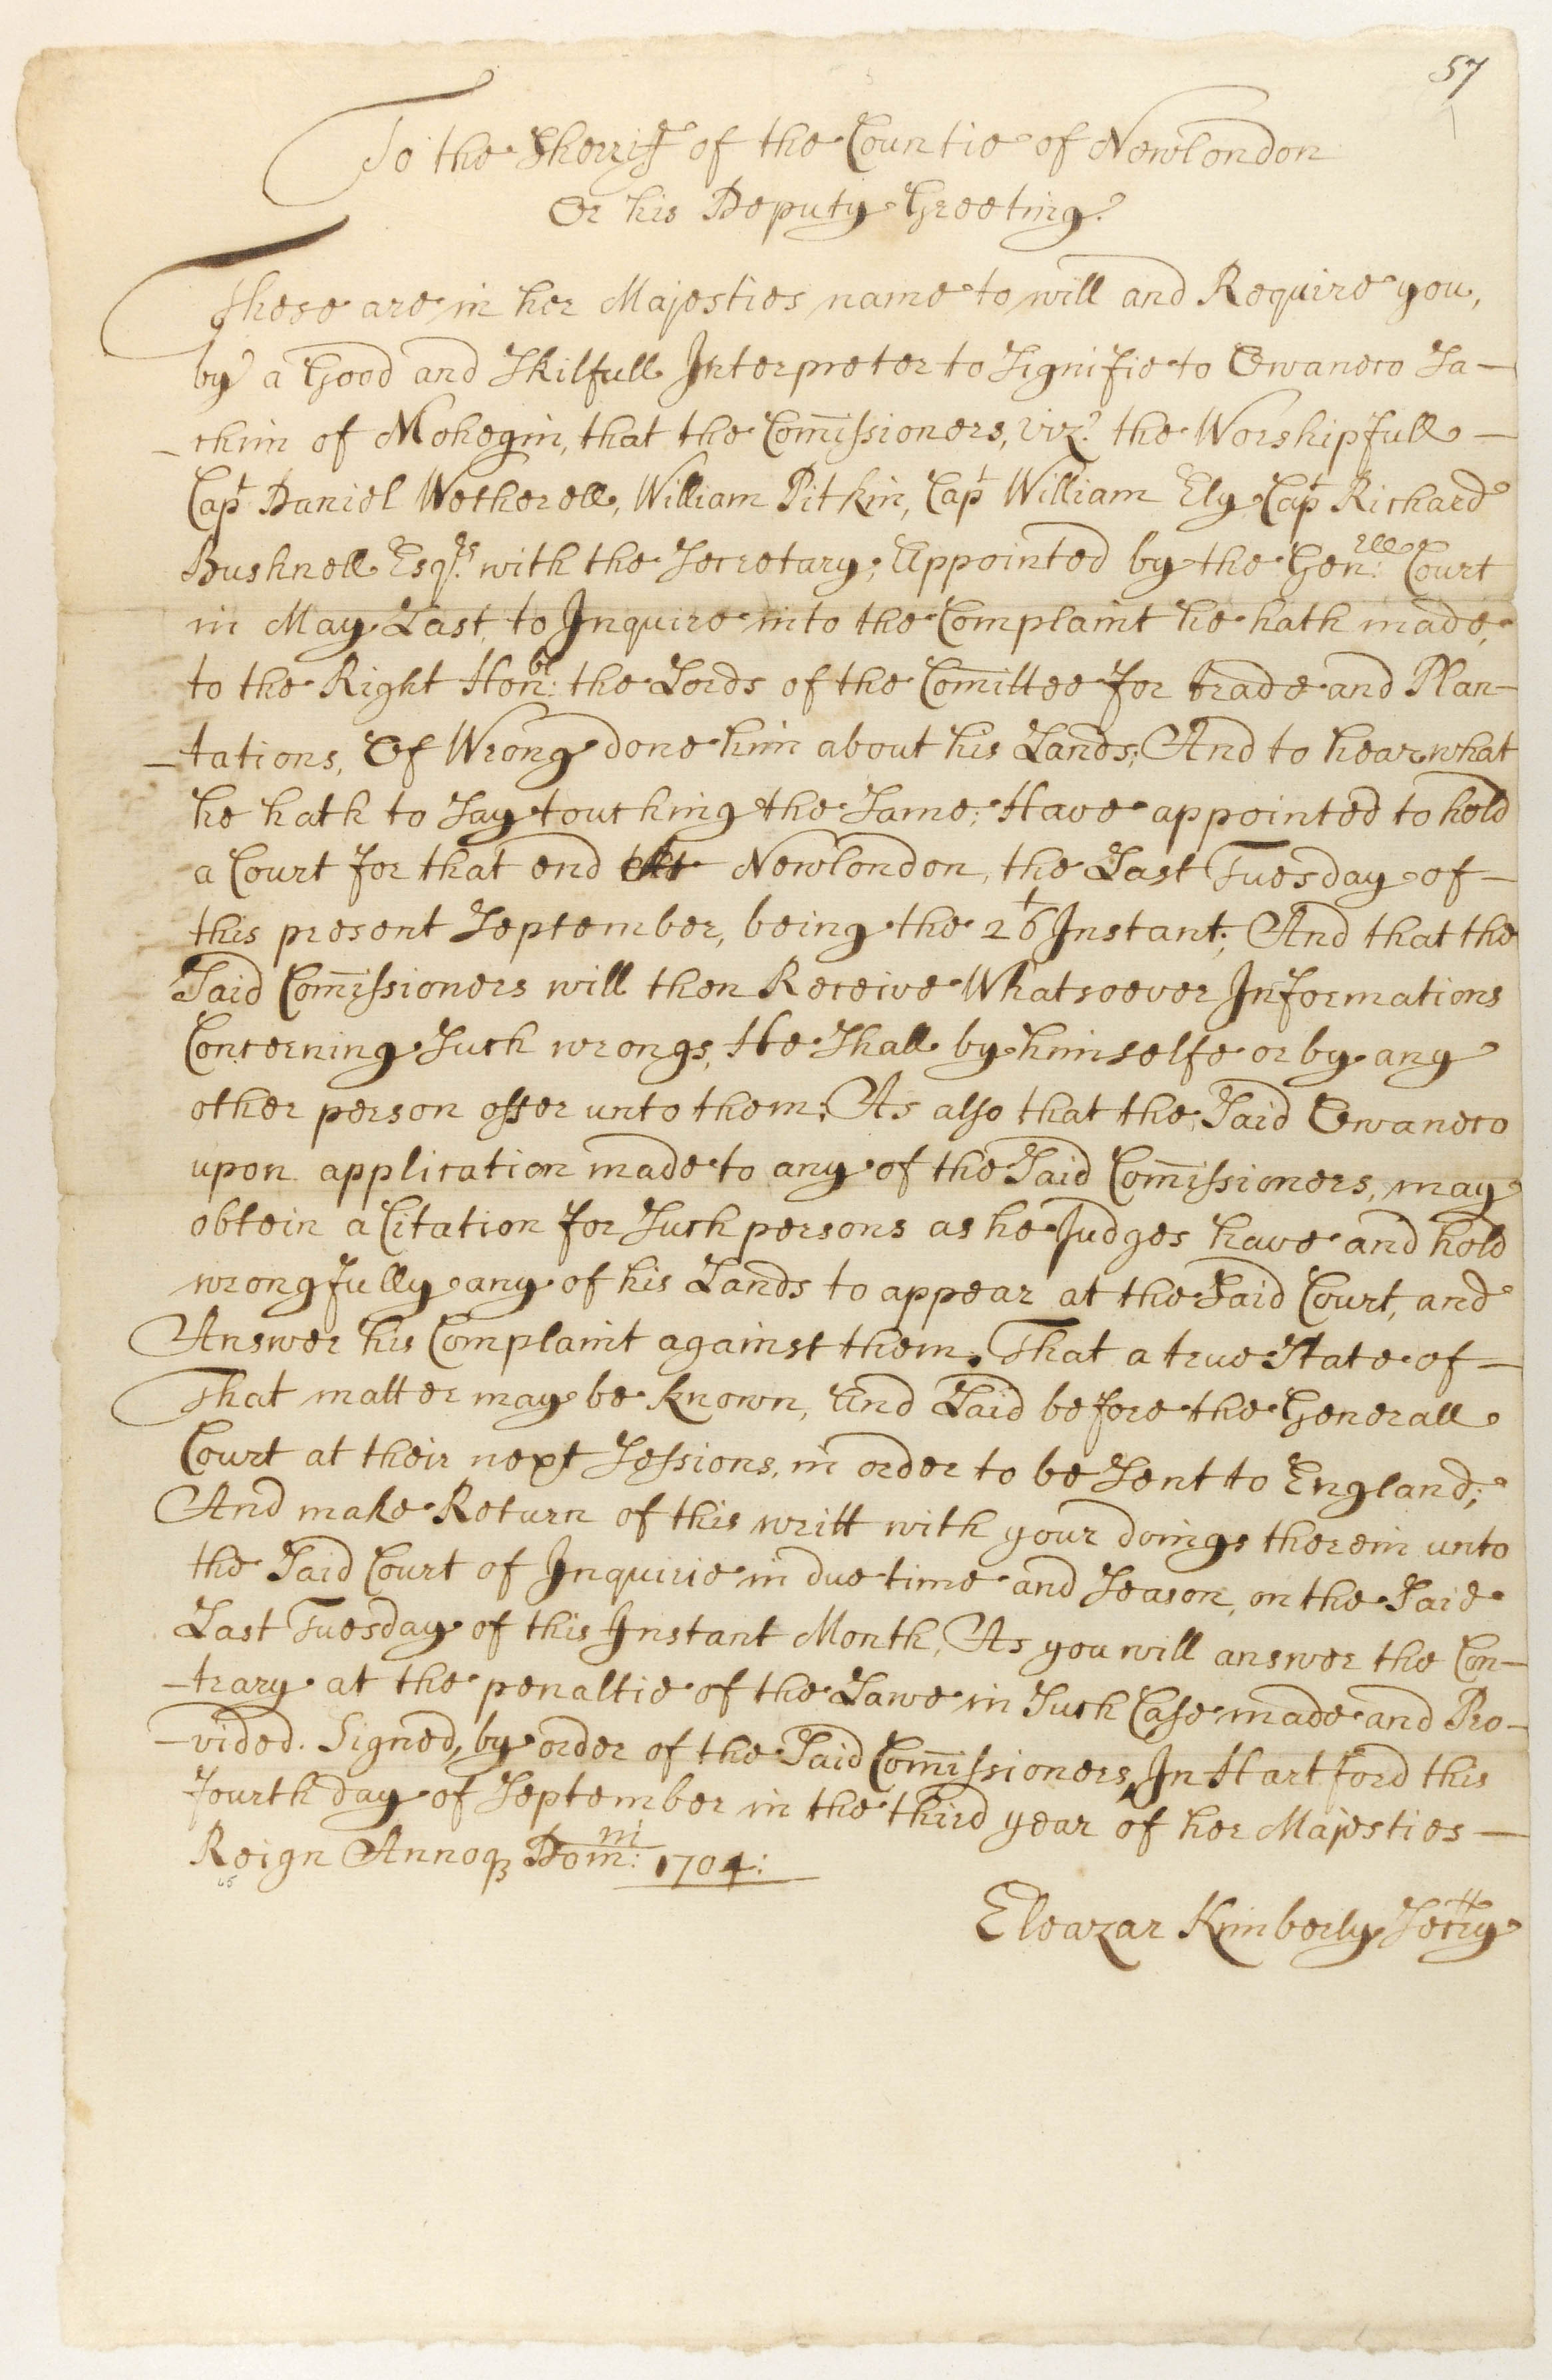 57
To the Sherriff of the Countie of Newlondon
Or his Deputy Greeting.
These are in her Majesties name to will and Require you,
by a Good and Skilfull Interpreter to Signifie to Owaneco Sa-
-chim of Mohegin, that the Com̅issioners, viz.t the Worshipfull -
Capt Daniel Wetherell, William Pitkin, Capt William Ely Capt Richard
Bushnell Esqrs. with the Secretary; Appointed by the Gen:rll Court
in May Last, to Inquire into the Complaint he hath made,
to the Right Honbl: the Lords of the Com̅ittee for trade and Plan-
-tations, Of Wrong done him about his Lands; And to hear what
he hath to Say touching the Same; Have appointed to hold
a Court for that end att Newlondon, the Last Tuesday of -
this present September, being the 26t Instant; And that the
Said Com̅issioners will then Receive Whatsoever Informations
Concerning Such wrongs, He Shall by himselfe or by any
other person offer unto them; As also that the Said Owaneco
upon application made to any of the Said Com̅issioners, may
obtein a Citation for Such persons as he Judges have and hold
wrongfully any of his Lands to appear at the Said Court, and
Answer his Complaint against them. That a true State of -
That matter may be known, And Laid before the Generall
Court at their next Sessions, in order to be Sent to England;
And make Return of this writt with your doings therein unto
the Said Court of Inquirie in due time and Season, on the Said
Last Tuesday of this Instant Month, As you will answer the Con-
-trary at the penaltie of the Lawe in Such Case made and Pro-
-vided. Signed, by order of the Said Com̅issioners, In Hartford this
fourth day of September in the third year of her Majesties -
Reign Annoq Domni: 1704:
Eleazar Kimberly Secrtry